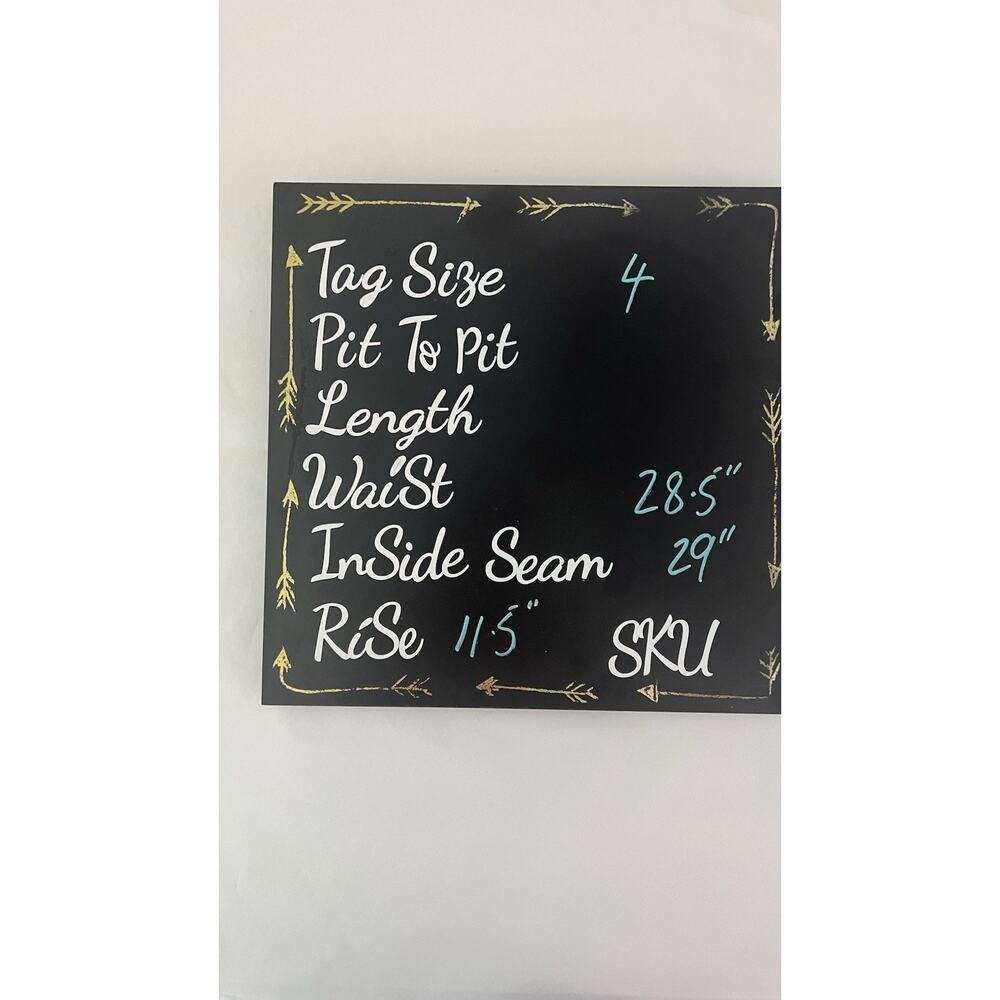 Tag Size 4
Pit To Pit
Length
WaiSt 28.5"
InSide Seam 29"
RiSe 11.5" SKU